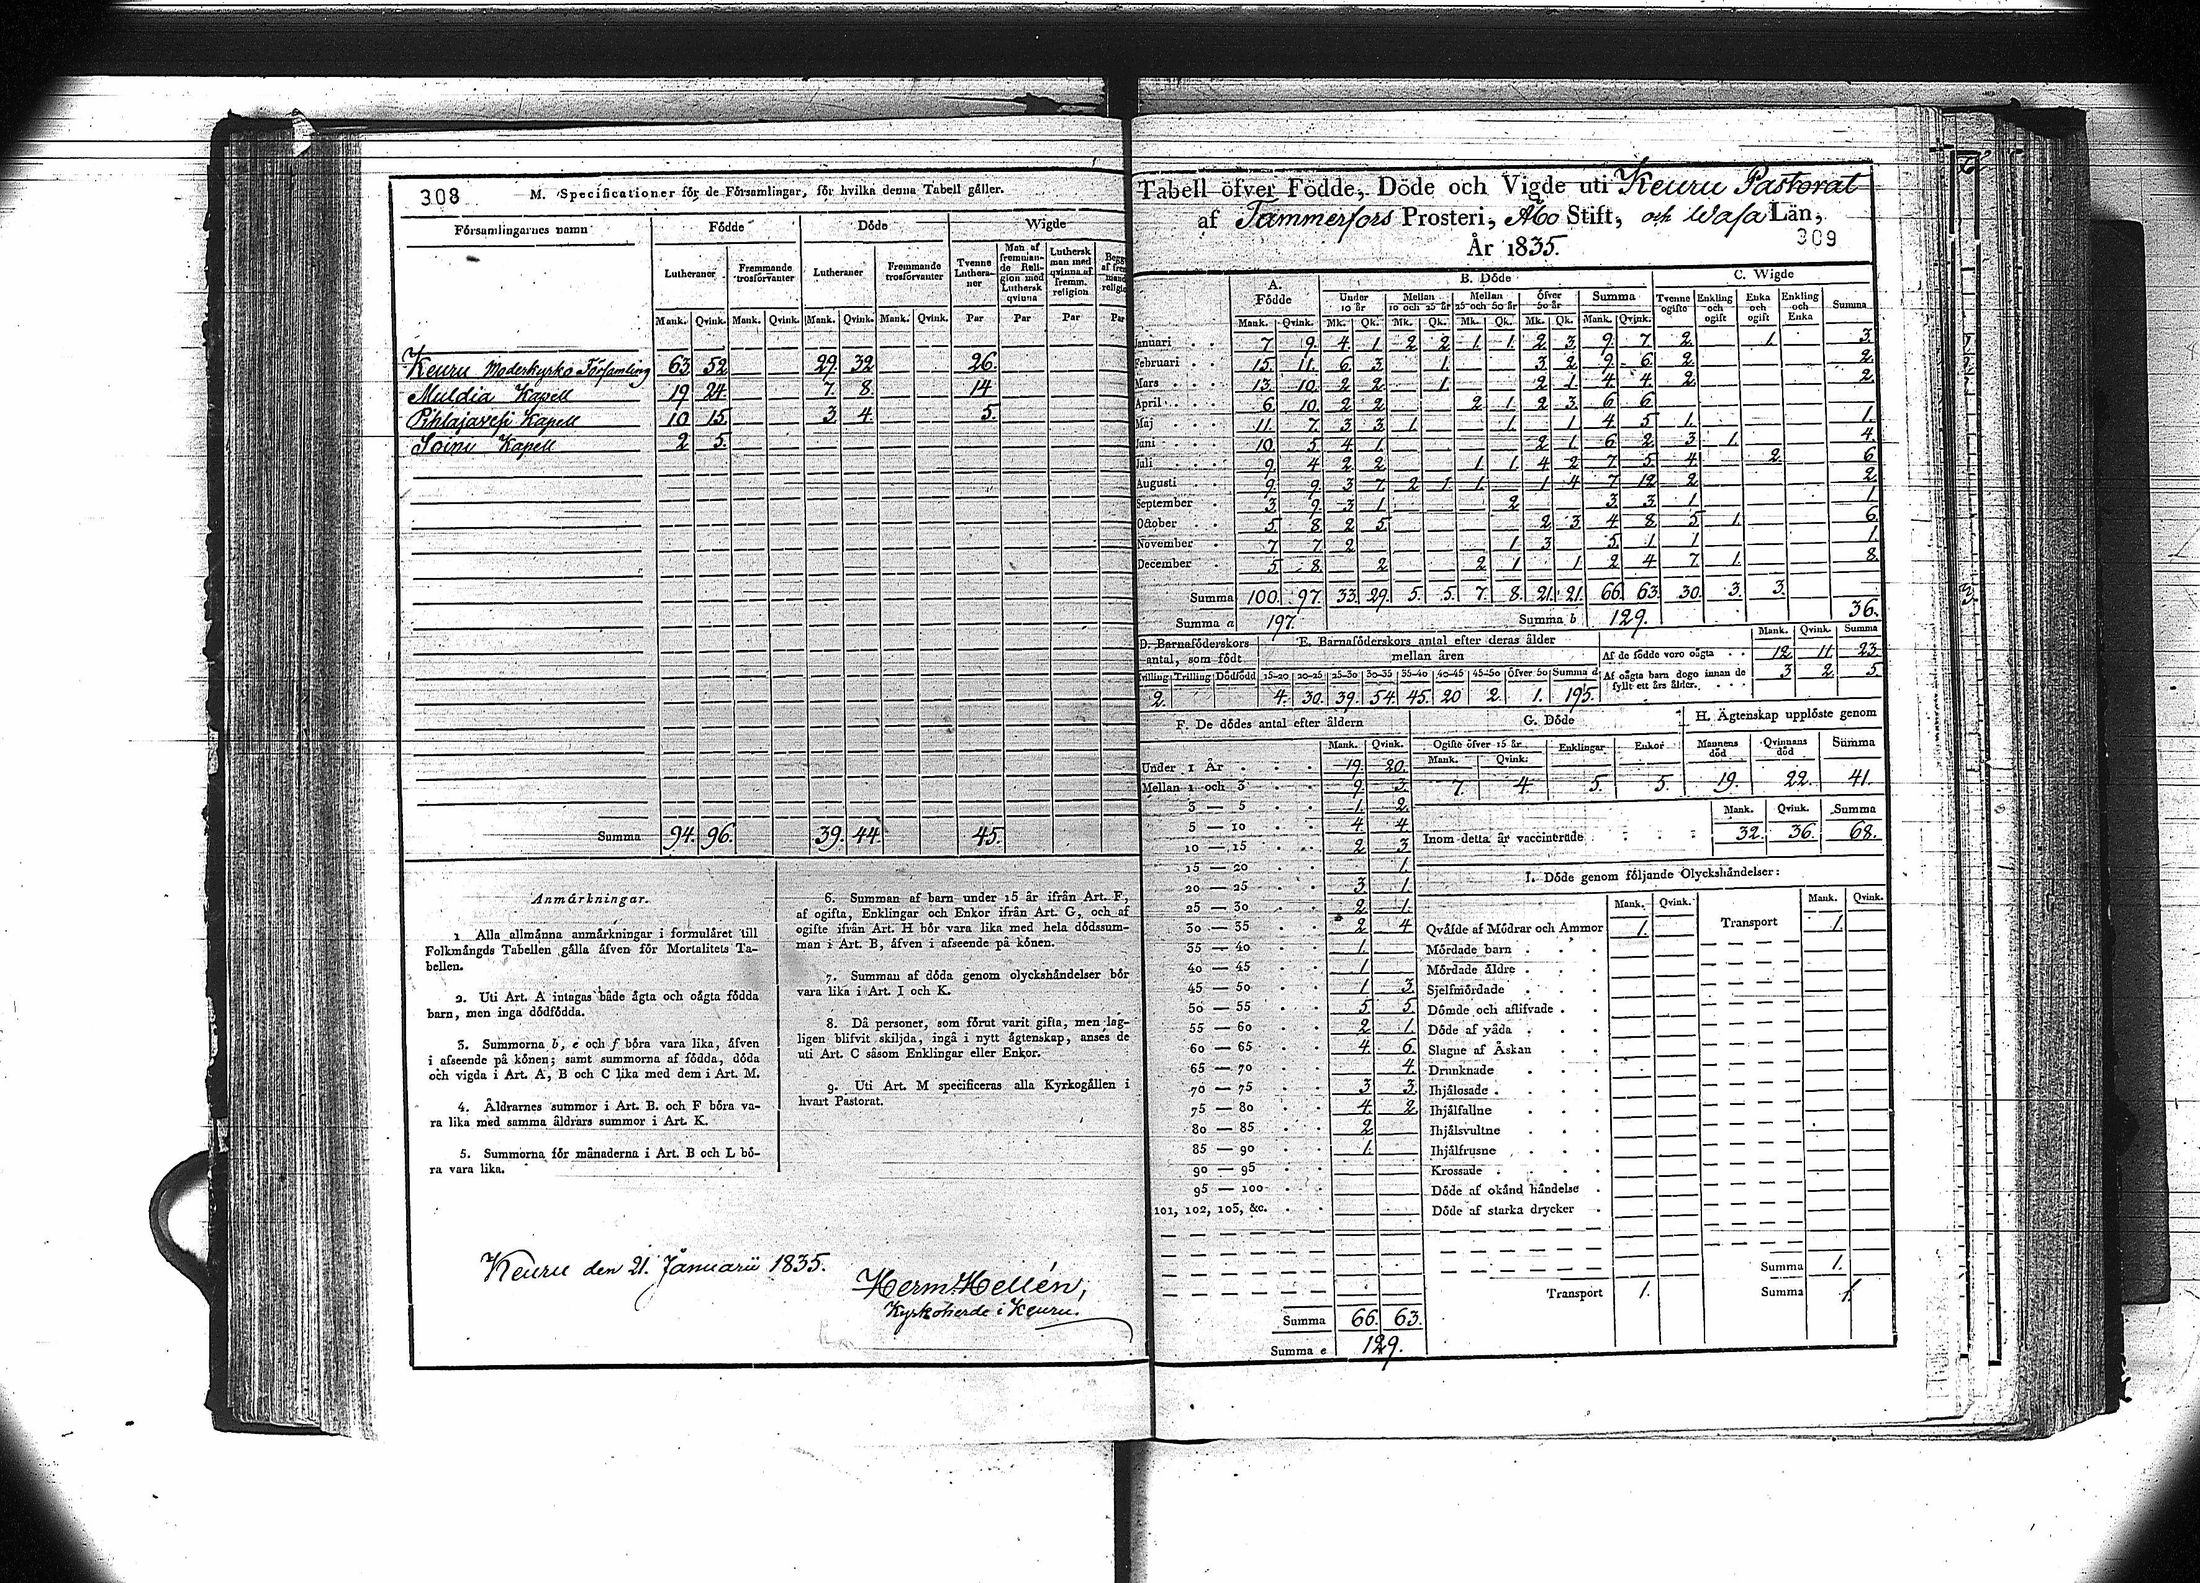 308
M. Specificationer för de Församlingar, för hvilka denna Tabell gäller.
Församlingarnes namn Födde Döde Wigde
Lutheraner Fremmande trosförvanter Lutheraner Fremmande trosförvanter Tvenne Lutheraner Man af fremmande Religion med Luthersk qvinna Luthersk man med qvinna af fremm. religion
Mank. Qvink. Mank. Qvink. Mank. Qvink. Mank. Qvink. Par Par Par Par
Keuru Moderkyrko Församling 63. 52 29. 32 26.
Muldia Kapell 19 24. 7. 8. 14
Pihlajavesi Kapell 10 15. 3. 4. 5.
Soini Kapell 2 5.
Summa 94. 96. 39. 44. 45.
Anmärkningar.
1. Alla allmänna anmärkningar i formuläret till
Folkmängds Tabellen gälla äfven för Mortalitets Ta-
bellen.
2. Uti Art. A intagas både ägta och oägta födda
barn, men inga dödfödda.
3. Summorna b, e och f böra vara lika, äfven
i afseende på könen; samt summorna af födda, döda
och vigda i Art. A, B och C lika med dem i Art. M.
4. Åldrarnes summor i Art. B. och F böra va-
ra lika med samma åldrars summor i Art. K.
5. Summorna för månaderna i Art. B och L bö-
ra vara lika.
6. Summan af barn under 15 år ifrån Art. F,
af ogifta, Enklingar och Enkor ifrån Art. G, och af
ogifte ifrån Art. H bör vara lika med hela dödssum-
man i Art. B, äfven i afseende på könen.
7. Summan af döda genom olyckshändelser bör
vara lika i Art. I och K.
8. Då personer, som förut varit gifta, men lag-
ligen blifvit skiljda, ingå i nytt ägtenskap, anses de
uti Art. C såsom Enklingar eller Enkor.
9. Uti Art. M specificeras alla Kyrkogällen i
hvart Pastorat.
Keuru den 21. Januarii 1835.
Herm. Hellén,
Kyrkoherde i Keuru.
Tabell öfver Födde, Döde och Vigde uti Keuru Pastorat
af Tammerfors Prosteri, Åbo Stift, och Wasa Län,
År 1835.
309
A. Födde B. Döde C. Wigde
Under 10 år Mellan 10 och 25 år Mellan 25 och 50 år Öfver 50 år Summa Tvenne ogifte Enkling och ogift Enka och ogift Enkling och Enka Summa
Mank. Qvink. Mk. Qk. Mk. Qk. Mk. Qk. Mk. Qk. Mank. Qvink.
Januari 7 9. 4. 1. 2 2 1. 1. 2 3. 9. 7 2. 1. 3.
Februari 15. 11. 6. 3. 1. 3. 2 9. 6 2. 2.
Mars 13. 10. 2 2. 1. 2 1. 4. 4. 2. 2.
April 6. 10. 2 2. 2 1. 2 3. 6 6
Maj 11. 7. 3. 3 1. 1. 1 4 5 1. 1.
Juni 10. 5 4 1. 2 1. 6 2. 3 1. 4.
Juli 9. 4 2 2 1 1. 4 2 7 5 4 2. 6
Augusti 9. 9. 3 7. 2 1. 1. 1 4 7 12 2. 2.
September 3 9. 3 1. 2 3 3 1. 1
October 5 8. 2 5 2 3 4 8. 5 1. 6
November 7 7 2 1. 3 5 1. 1 1.
December 5 8. 2 2 1 1. 2 4 7 1. 8.
Summa 100. 97. 33. 29. 5. 5. 7. 8. 21. 21. 66. 63. 30. 3. 3.
Summa a 197. Summa b 129. 36.
D. Barnaföderskors antal, som födt
Tvilling Trilling Dödfödd
2.
E. Barnaföderskors antal efter deras ålder
mellan åren
15-20 20-25 25-30 30-35 35-40 40-45 45-50 Öfver 50 Summa d
4. 30. 39. 54. 45. 20 2. 1. 195.
Mank. Qvink. Summa
Af de födde voro oägta 12 11. 23.
Af oägta barn dogo innan de
fyllt ett års ålder. 3 2. 5.
F. De dödes antal efter åldern
Mank. Qvink.
Under 1 År 19. 20.
Mellan 1 och 3 9. 3.
3 — 5 1. 2.
5 — 10 4. 4.
10 — 15 2 3.
15 — 20 1.
20 — 25 3 1.
25 — 30 2 1.
30 — 35 2 4
35 — 40 1.
40 — 45 1
45 — 50 1 3.
50 — 55 5 5.
55 — 60 2 1.
60 — 65 4. 6.
65 — 70 4.
70 — 75 3 3.
75 — 80 4. 2.
80 — 85 2
85 — 90 1.
90 — 95
95 — 100
101, 102, 103, &c.
Summa 66. 63.
Summa e 129.
G. Döde
Ogifte öfver 15 år Enklingar Enkor
Mank. Qvink.
7. 4. 5. 5.
H. Ägtenskap upplöste genom
Mannens död Qvinnans död Summa
19. 22. 41.
Mank. Qvink. Summa
Inom detta år vaccinerade 32. 36. 68.
I. Döde genom följande Olyckshändelser:
Mank. Qvink. Mank. Qvink.
Qväfde af Mödrar och Ammor 1. Transport 1.
Mördade barn
Mördade äldre
Sjelfmördade
Dömde och aflifvade
Döde af våda
Slagne af Åskan
Drunknade
Ihjälosade
Ihjälfallne
Ihjälsvultne
Ihjälfrusne
Krossade
Döde af okänd händelse
Döde af starka drycker
Summa 1.
Transport 1. Summa 1.